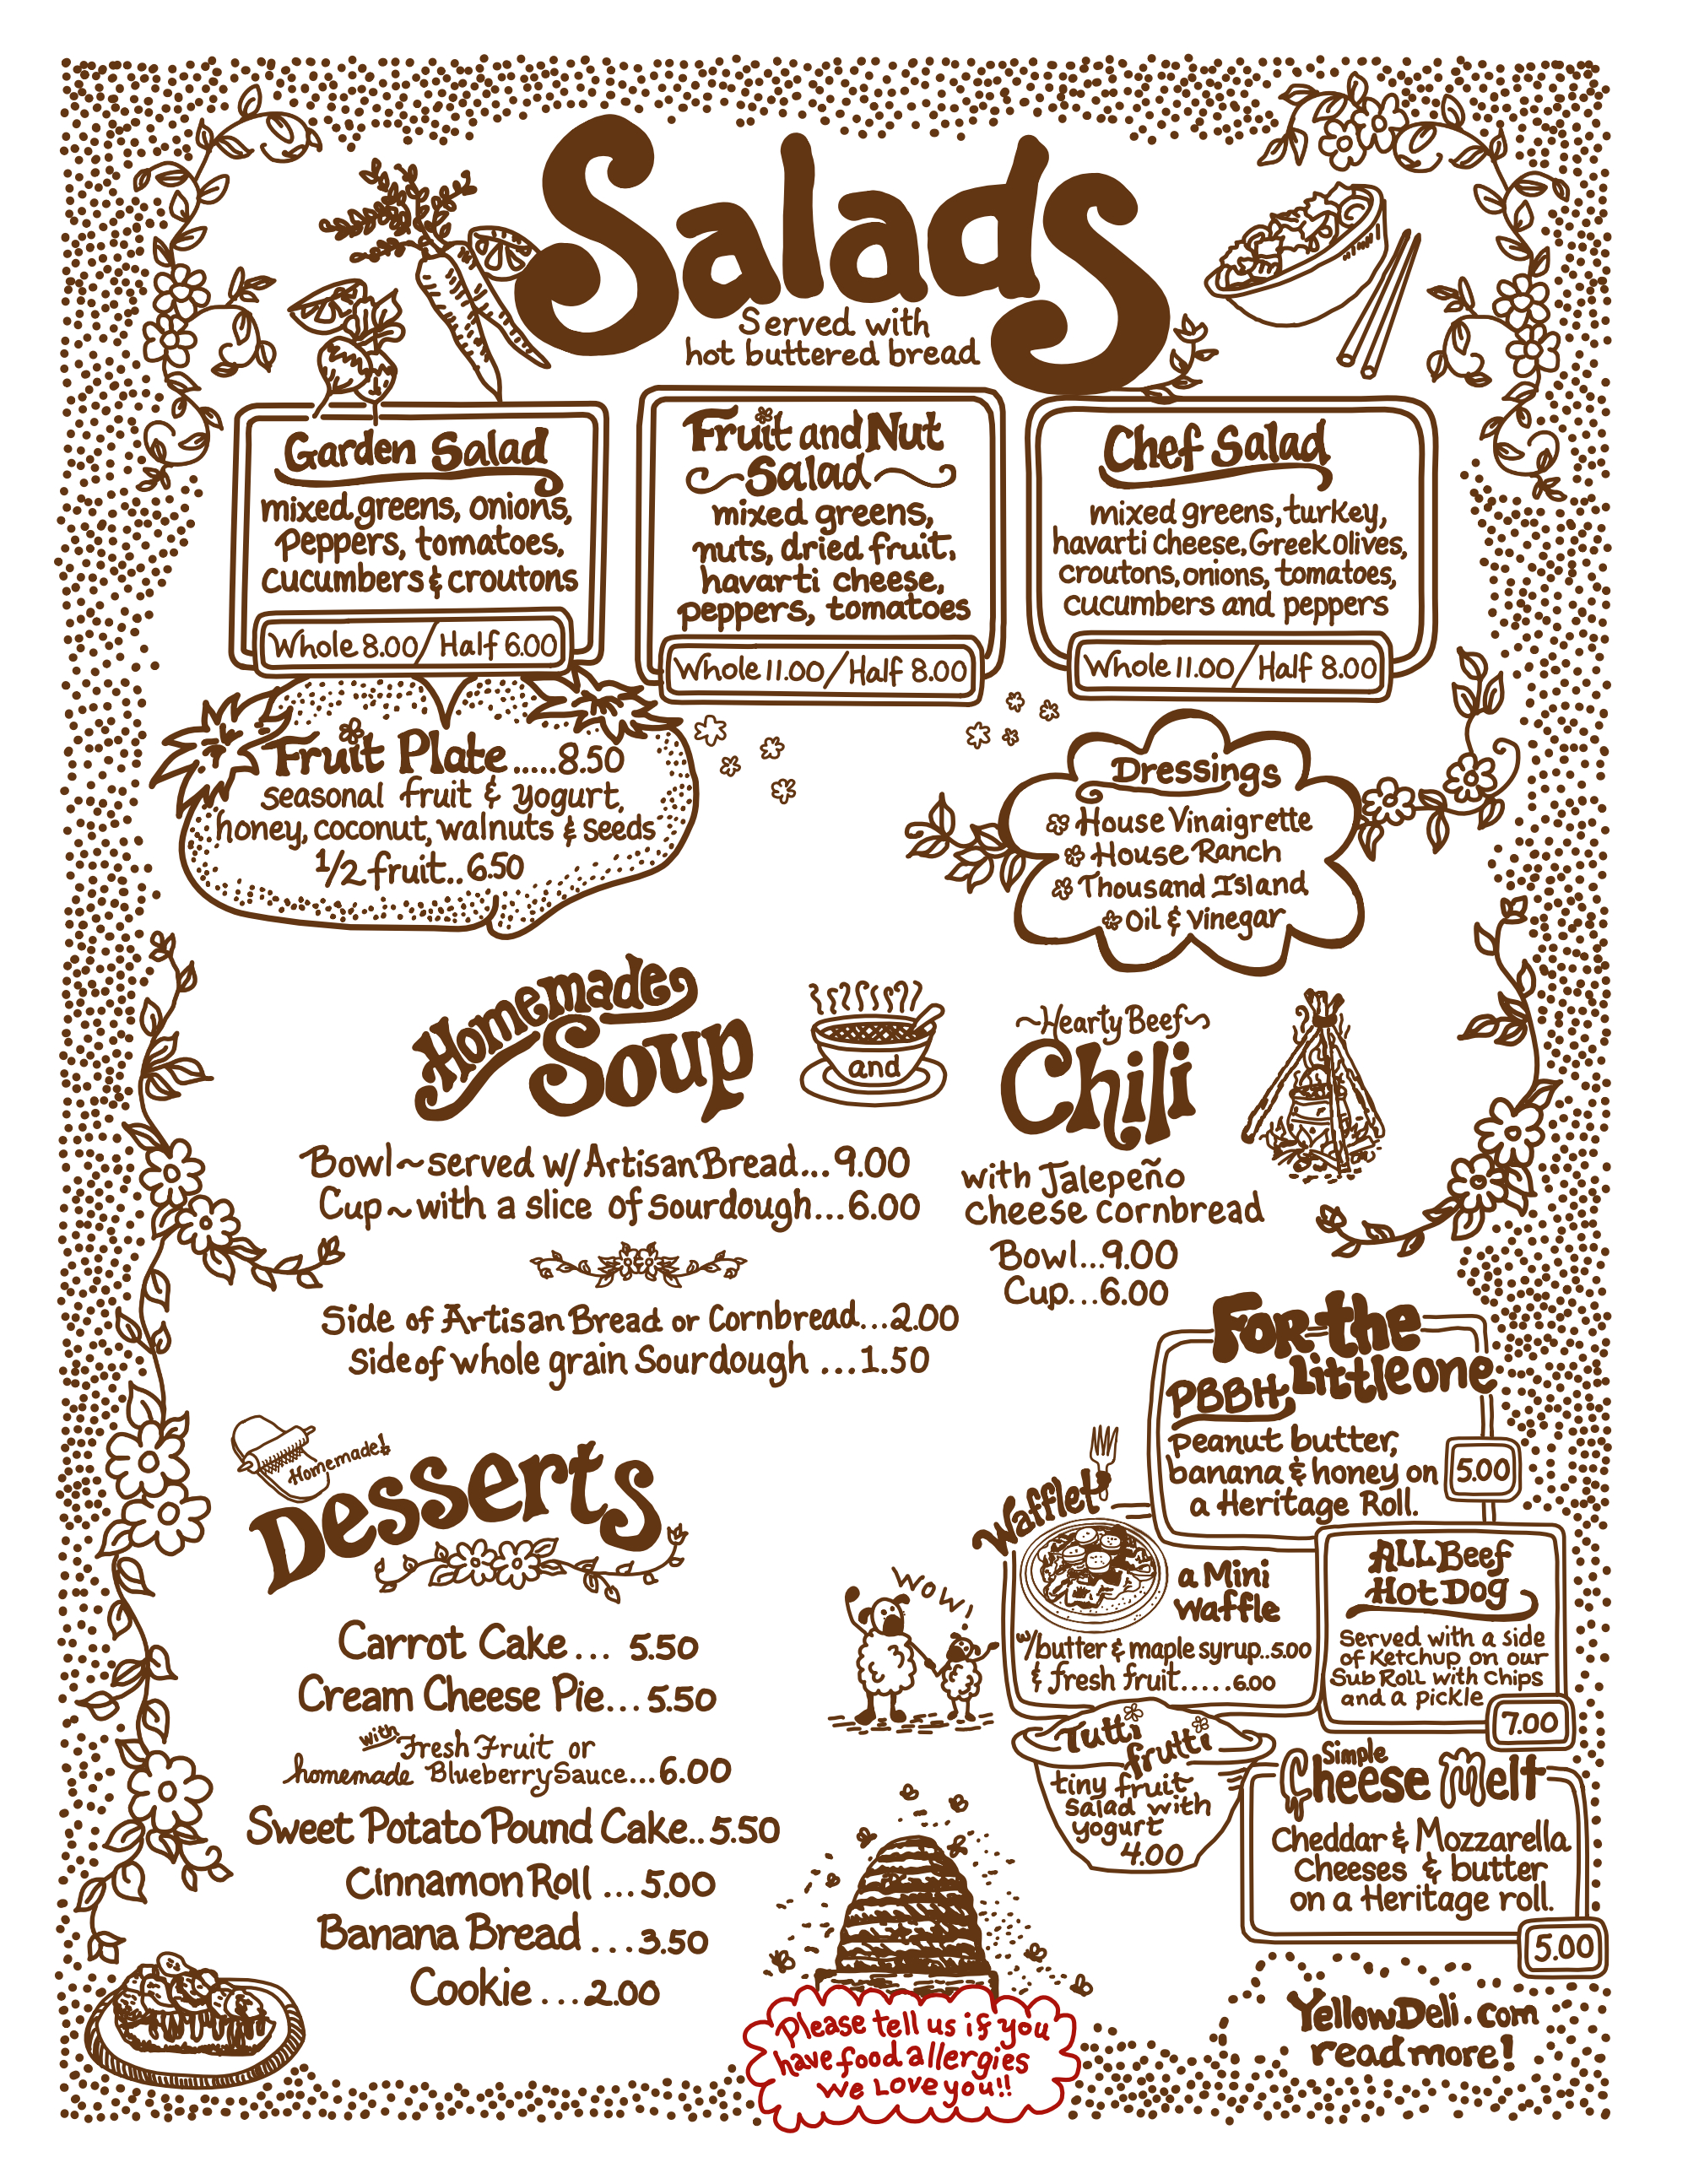 Salads
Served with
hot buttered bread
Garden Salad
mixed greens, onions,
Peppers, tomatoes,
Cucumbers & croutons
Whole 8.00/Half 6.00
Fruit and Nut
~Salad~
mixed greens,
nuts, dried fruit,
havarti cheese,
peppers, tomatoes
Whole 11.00/Half 8.00
Chef Salad
mixed greens, turkey,
havarti cheese, Greek olives,
croutons, onions, tomatoes,
cucumbers and peppers
Whole 11.00/Half 8.00
Fruit Plate.....8.50
seasonal fruit & yogurt,
honey, coconut, walnuts & seeds
1/2 fruit..6.50
Dressings
House Vinaigrette
House Ranch
Thousand Island
Oil & Vinegar
Homemade
Soup
and
~Hearty Beef~
Chili
Bowl~served w/ Artisan Bread...9.00
Cup~with a slice of Sourdough...6.00
with Jalepeño
cheese cornbread
Bowl...9.00
Cup...6.00
Side of Artisan Bread or Cornbread...2.00
Side of whole grain Sourdough ...1.50
For the
Little one
PBBH
peanut butter,
banana & honey on
a Heritage Roll.
5.00
Wafflet
a Mini
waffle
w/butter & maple syrup..5.00
& fresh fruit.....6.00
ALL Beef
Hot Dog
Served with a side
of Ketchup on our
Sub Roll with Chips
and a pickle
7.00
Tutti
frutti
tiny fruit
salad with
yogurt
4.00
Simple
Cheese Melt
Cheddar & Mozzarella
Cheeses & butter
on a Heritage roll.
5.00
Homemade!
Desserts
Carrot Cake... 5.50
Cream Cheese Pie...5.50
with Fresh Fruit or
homemade Blueberry Sauce...6.00
Sweet Potato Pound Cake..5.50
Cinnamon Roll ...5.00
Banana Bread ...3.50
Cookie ...2.00
WOW!
Please tell us if you
have food allergies
We Love you!!
YellowDeli.com
read more!